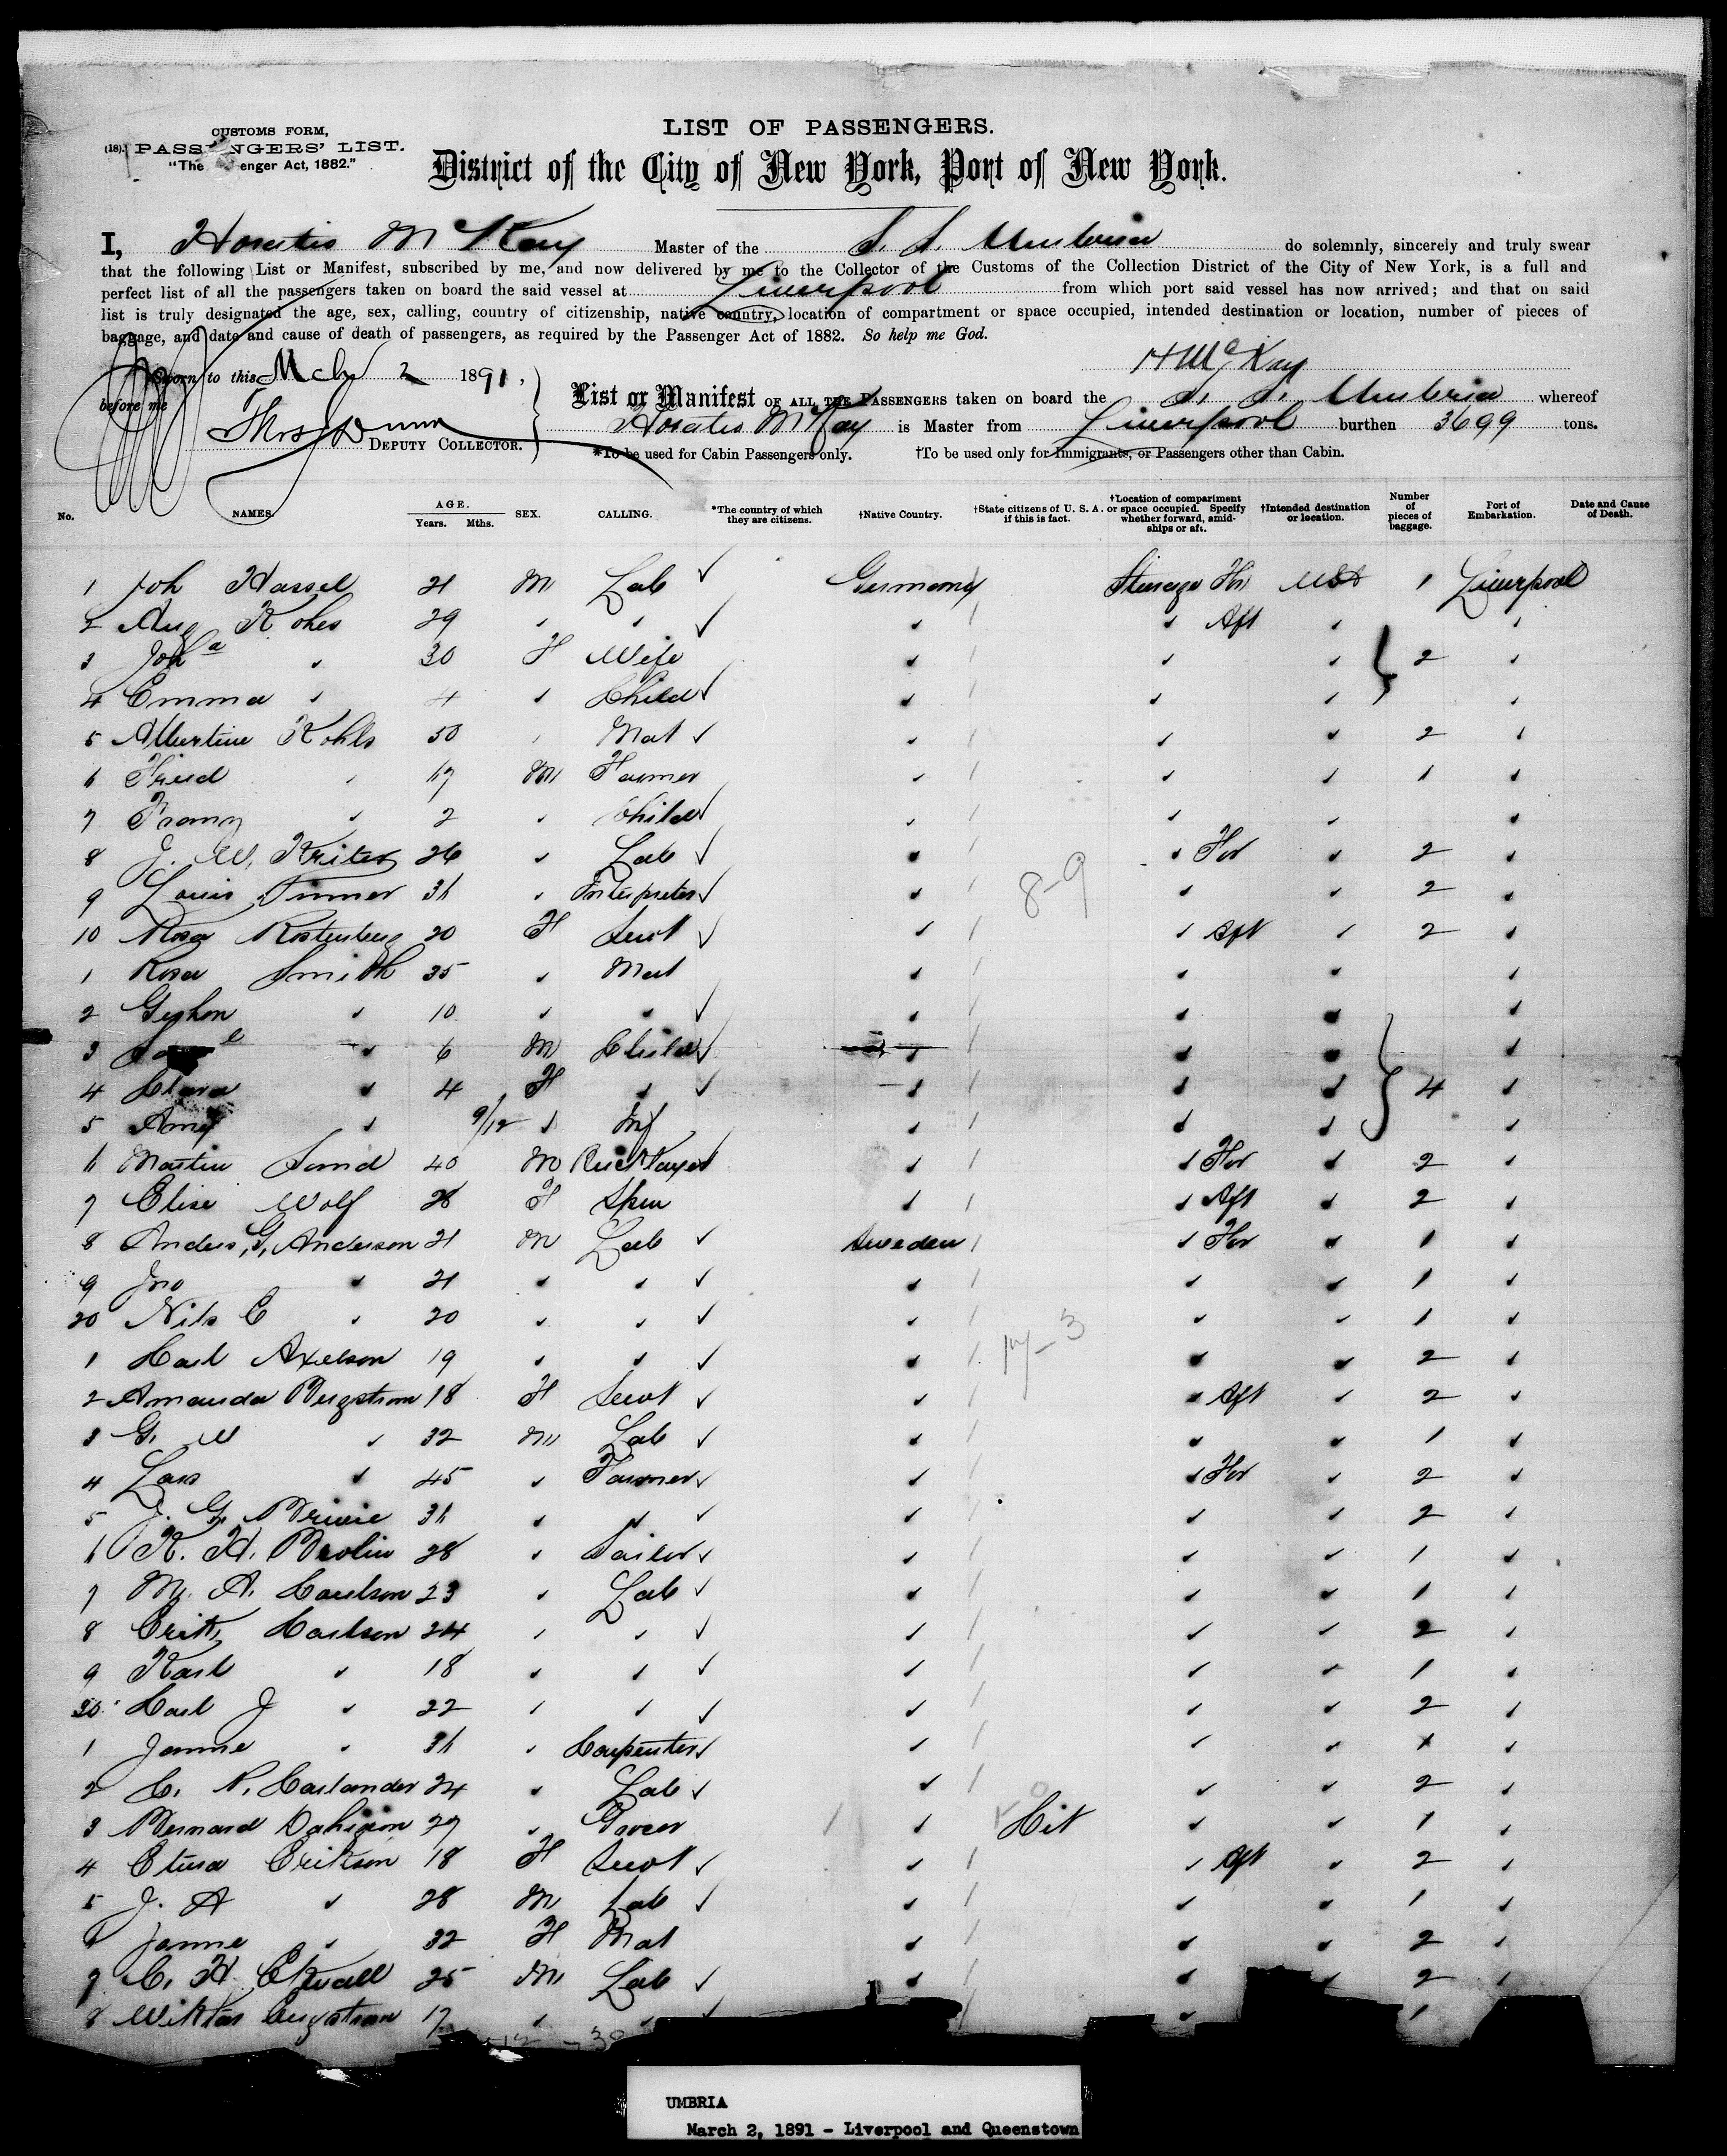 LIST OF PASSENGERS.
CUSTOMS FORM,
(18). PASSENGERS' LIST.
"The enger Act, 1882."
District of the City of New York, Port of New York.
I, Horatio McKay Master of the S. S. Umbria do solemnly, sincerely and truly swear
that the following List or Manifest, subscribed by me, and now delivered by me to the Collector of the Customs of the Collection District of the City of New York, is a full and
perfect list of all the passengers taken on board the said vessel at Liverpool from which port said vessel has now arrived; and that on said
list is truly designated the age, sex, calling, country of citizenship, native country, location of compartment or space occupied, intended destination or location, number of pieces of
baggage, and date and cause of death of passengers, as required by the Passenger Act of 1882. So help me God.
H McKay
Sworn to this Mch 2 1891,
before me
DEPUTY COLLECTOR.
List or Manifest OF ALL THE PASSENGERS taken on board the S. S. Umbria whereof
Horatio McKay is Master from Liverpool burthen 3699 tons.
*To be used for Cabin Passengers only. †To be used only for Immigrants, or Passengers other than Cabin.
No. NAMES. AGE. Years. Mths. SEX. CALLING. *The country of which they are citizens. †Native Country. †State citizens of U. S. A. if this is fact. †Location of compartment or space occupied. Specify whether forward, amidships or aft. †Intended destination or location. Number of pieces of baggage. Port of Embarkation. Date and Cause of Death.
1 Joh Hassel 21 M Lab Germany Steerage For USA 1 Liverpool
2 Aug Kohes 29 Aft
3 Joha 30 F Wife 2
4 Emma 4 Child
5 Albertine Kohls 50 Mat 2
6 Fried 17 M Farmer 1
7 Franz 2 Child
8 J. W. Kriter 26 Lab For 2
9 Louis Tinner 31 Interpreter 2
8-9
10 Rosa Rostenberg 20 F Servt Aft 2
1 Rosa Smith 35 Mat
2 Gershon 10
3 6 M Child
4 Clara 4 F 4
5 Amy 9/12 Inf
6 Martin Smid 40 M For 2
7 Elise Wolf 28 F Spin Aft 2
8 Anders G. Anderson 21 M Lab Sweden For 1
9 Jno 21 1
20 Nils C 20 1
17-3
1 Carl Axelson 19 2
2 Amanda Bergstrom 18 F Servt Aft 2
3 G. W 32 M Lab 1
4 Lars 45 Farmer For 2
5 J. G. 31 2
6 K. H. Brolin 28 Sailor 1
7 M. A. Carlson 23 Lab 1
8 Erik Carlson 24 2
9 Karl 18 1
30 Carl J 22 2
1 Janne 31 Carpenter 1
2 C. N. Carlander 24 Lab 2
3 Bernard 27 Grocer Cit 1
4 Erikson 18 F Servt Aft 2
5 J. A 28 M Lab 1
6 Janne 32 F Mat 2
7 C. H. Ekwall 25 M Lab 2
8 17 1
UMBRIA
March 2, 1891 - Liverpool and Queenstown